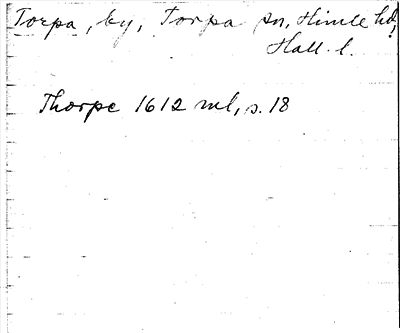 Torpa, by, Torpa sn, Himle hd,
Hall. l.
Thorpe 1612 ml, s. 18